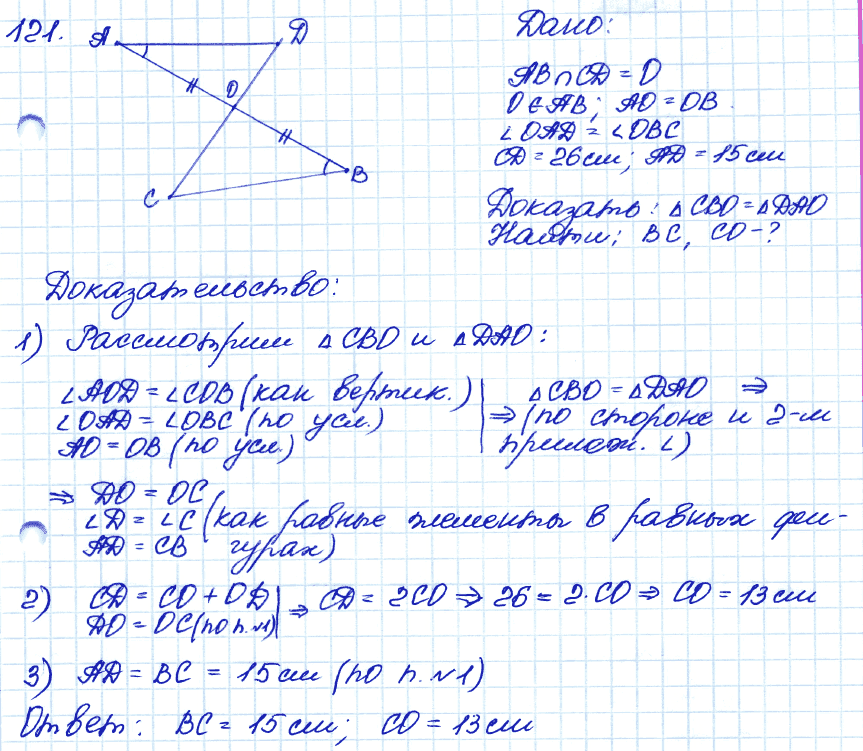 121.
A
D
O
C
B
Дано:
AB∩CD = O
O∈AB; AO = OB.
∠OAD = ∠OBC
CD = 26 см; AD = 15 см
Доказать: △CBO = △DAO
Найти; BC, CO - ?
Доказательство:
1) Рассмотрим △CBO и △DAO:
∠AOD = ∠COB (как вертик.)
∠OAD = ∠OBC (по усл.)
AO = OB (по усл.)
△CBO = △DAO ⇒
⇒ (по стороне и 2-м
прилеж. ∠)
⇒ DO = OC
∠D = ∠C (как равные элементы в равных фи-
AD = CB гурах)
2) CD = CO + OD
DO = OC (по п. №1)
⇒ CD = 2CO ⇒ 26 = 2·CO ⇒ CO = 13 см
3) AD = BC = 15 см (по п. №1)
Ответ: BC = 15 см; CO = 13 см